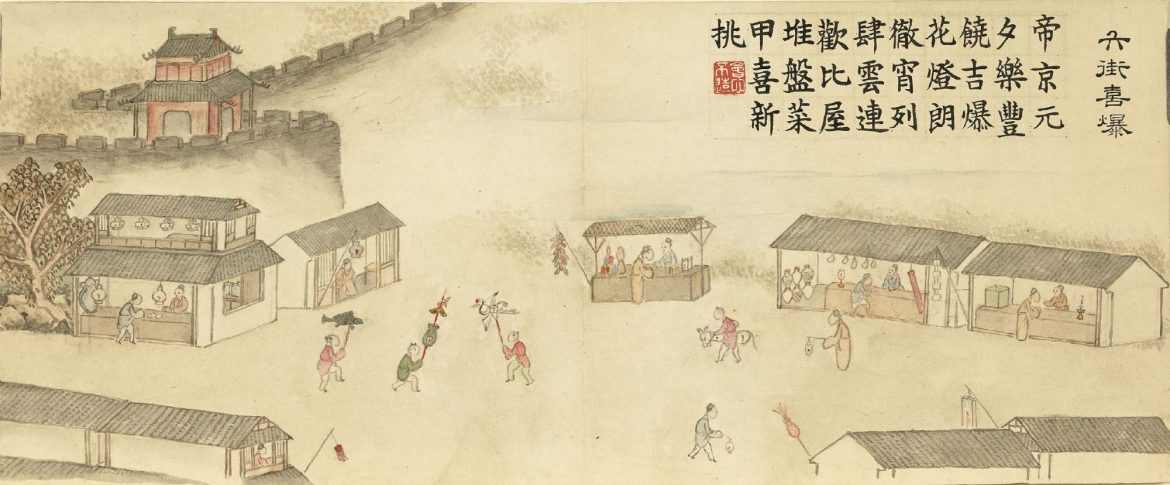 六街喜爆
帝京元
夕樂豐
饒吉爆
花燈朗
徹宵列
肆雲連
歡比屋
堆盤菜
甲喜新
挑
會心
不遠